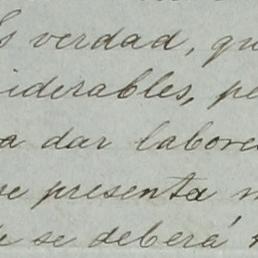 s verdad, qu
iderables, pe
a dar labore
se presenta
se deberá